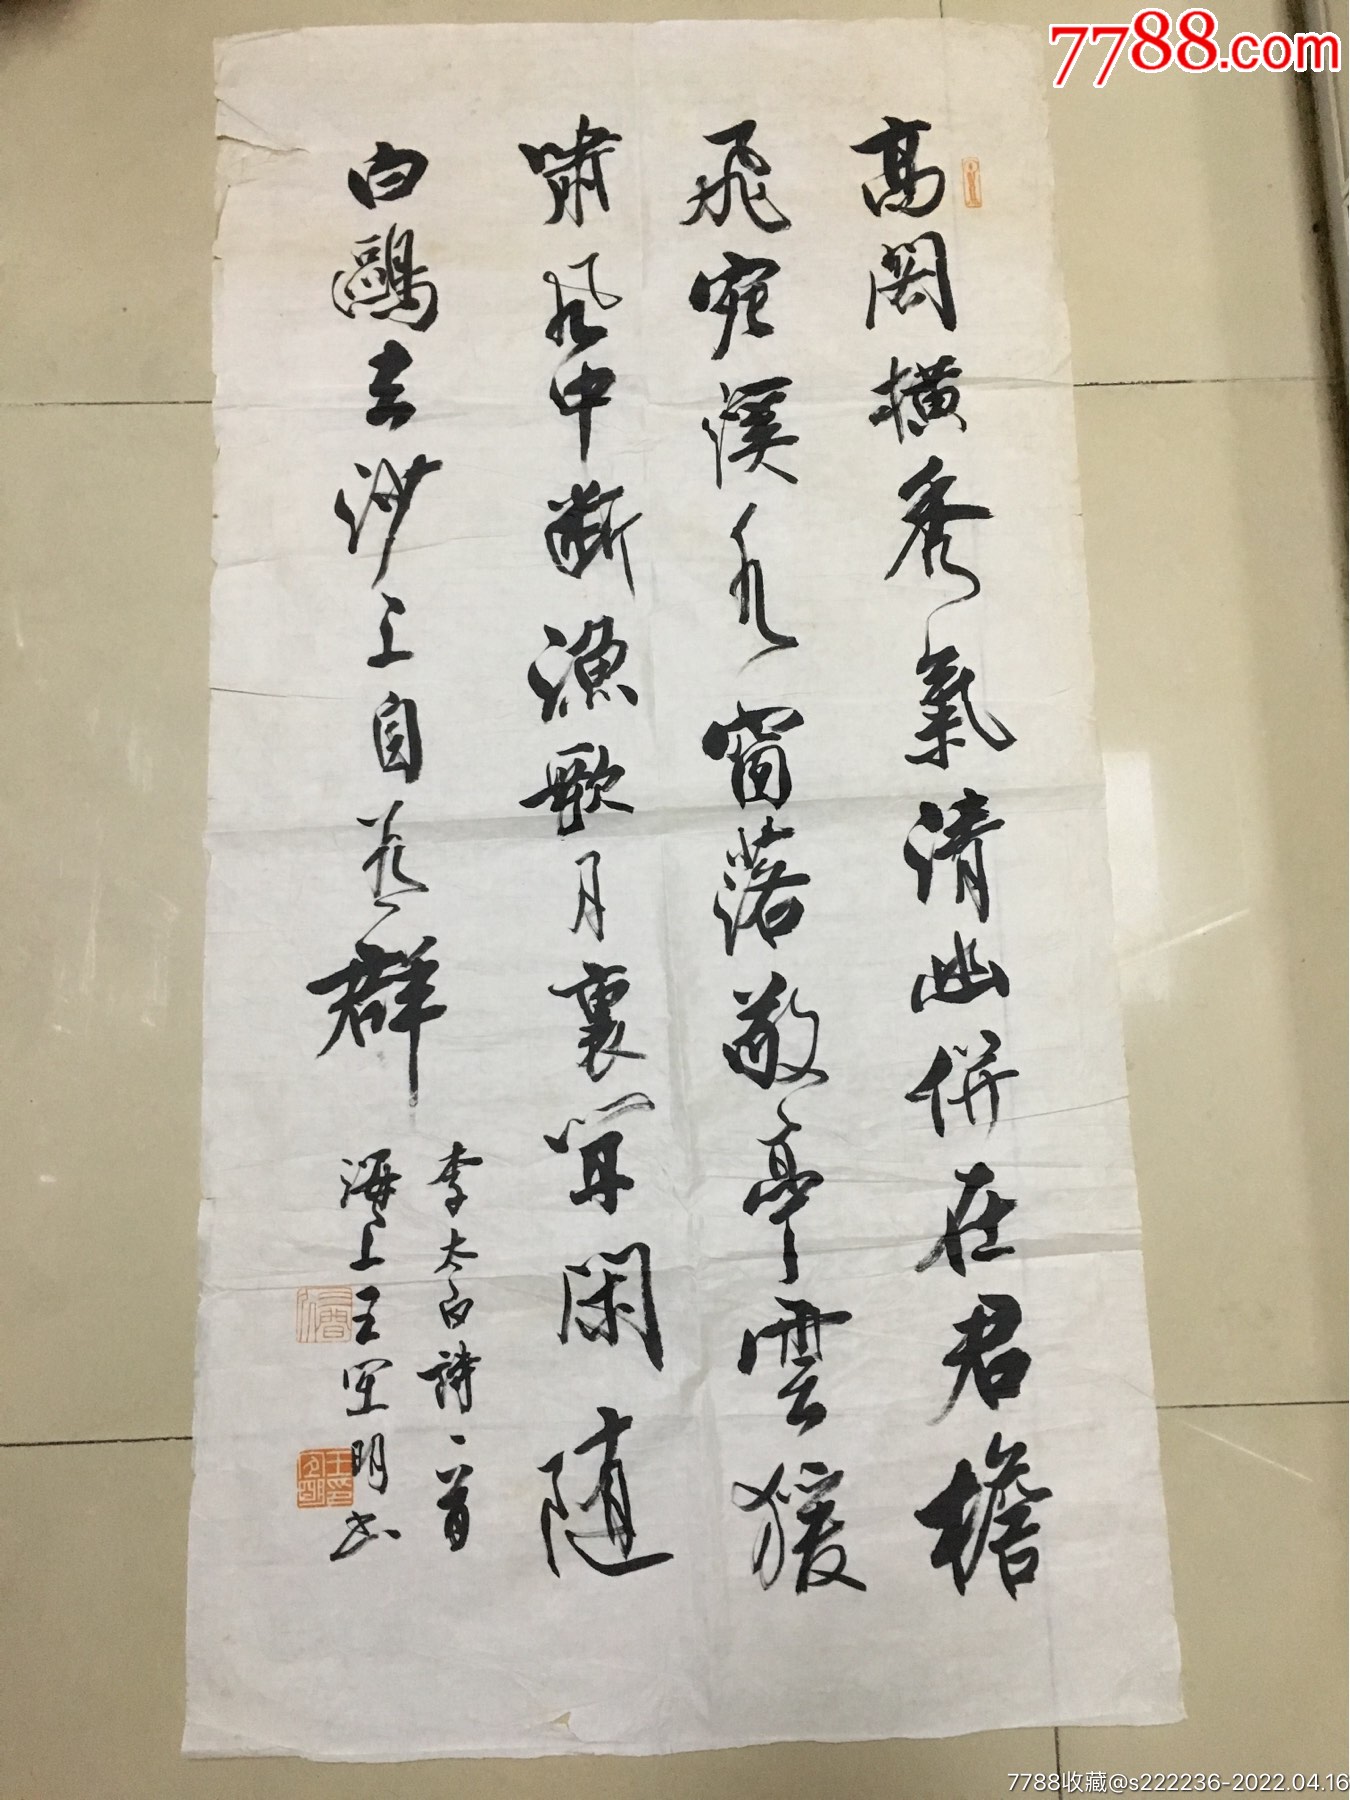 7788.com
高閣橫秀氣清幽併在君檐
飛宛溪水窗落敬亭雲猨
嘯風中斷漁歌月裏聞閑隨
白鷗去沙上自為群
李太白詩一首
海上王宽明書
7788收藏@s222236-2022.04.16